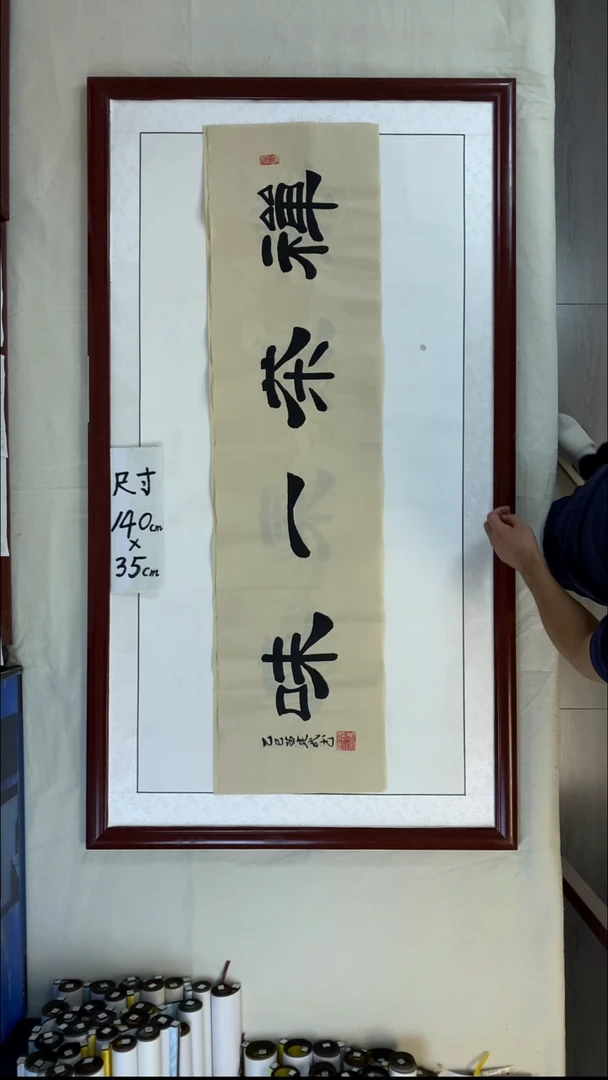 禪茶一味
乙巳
尺寸
140cm
×
35cm